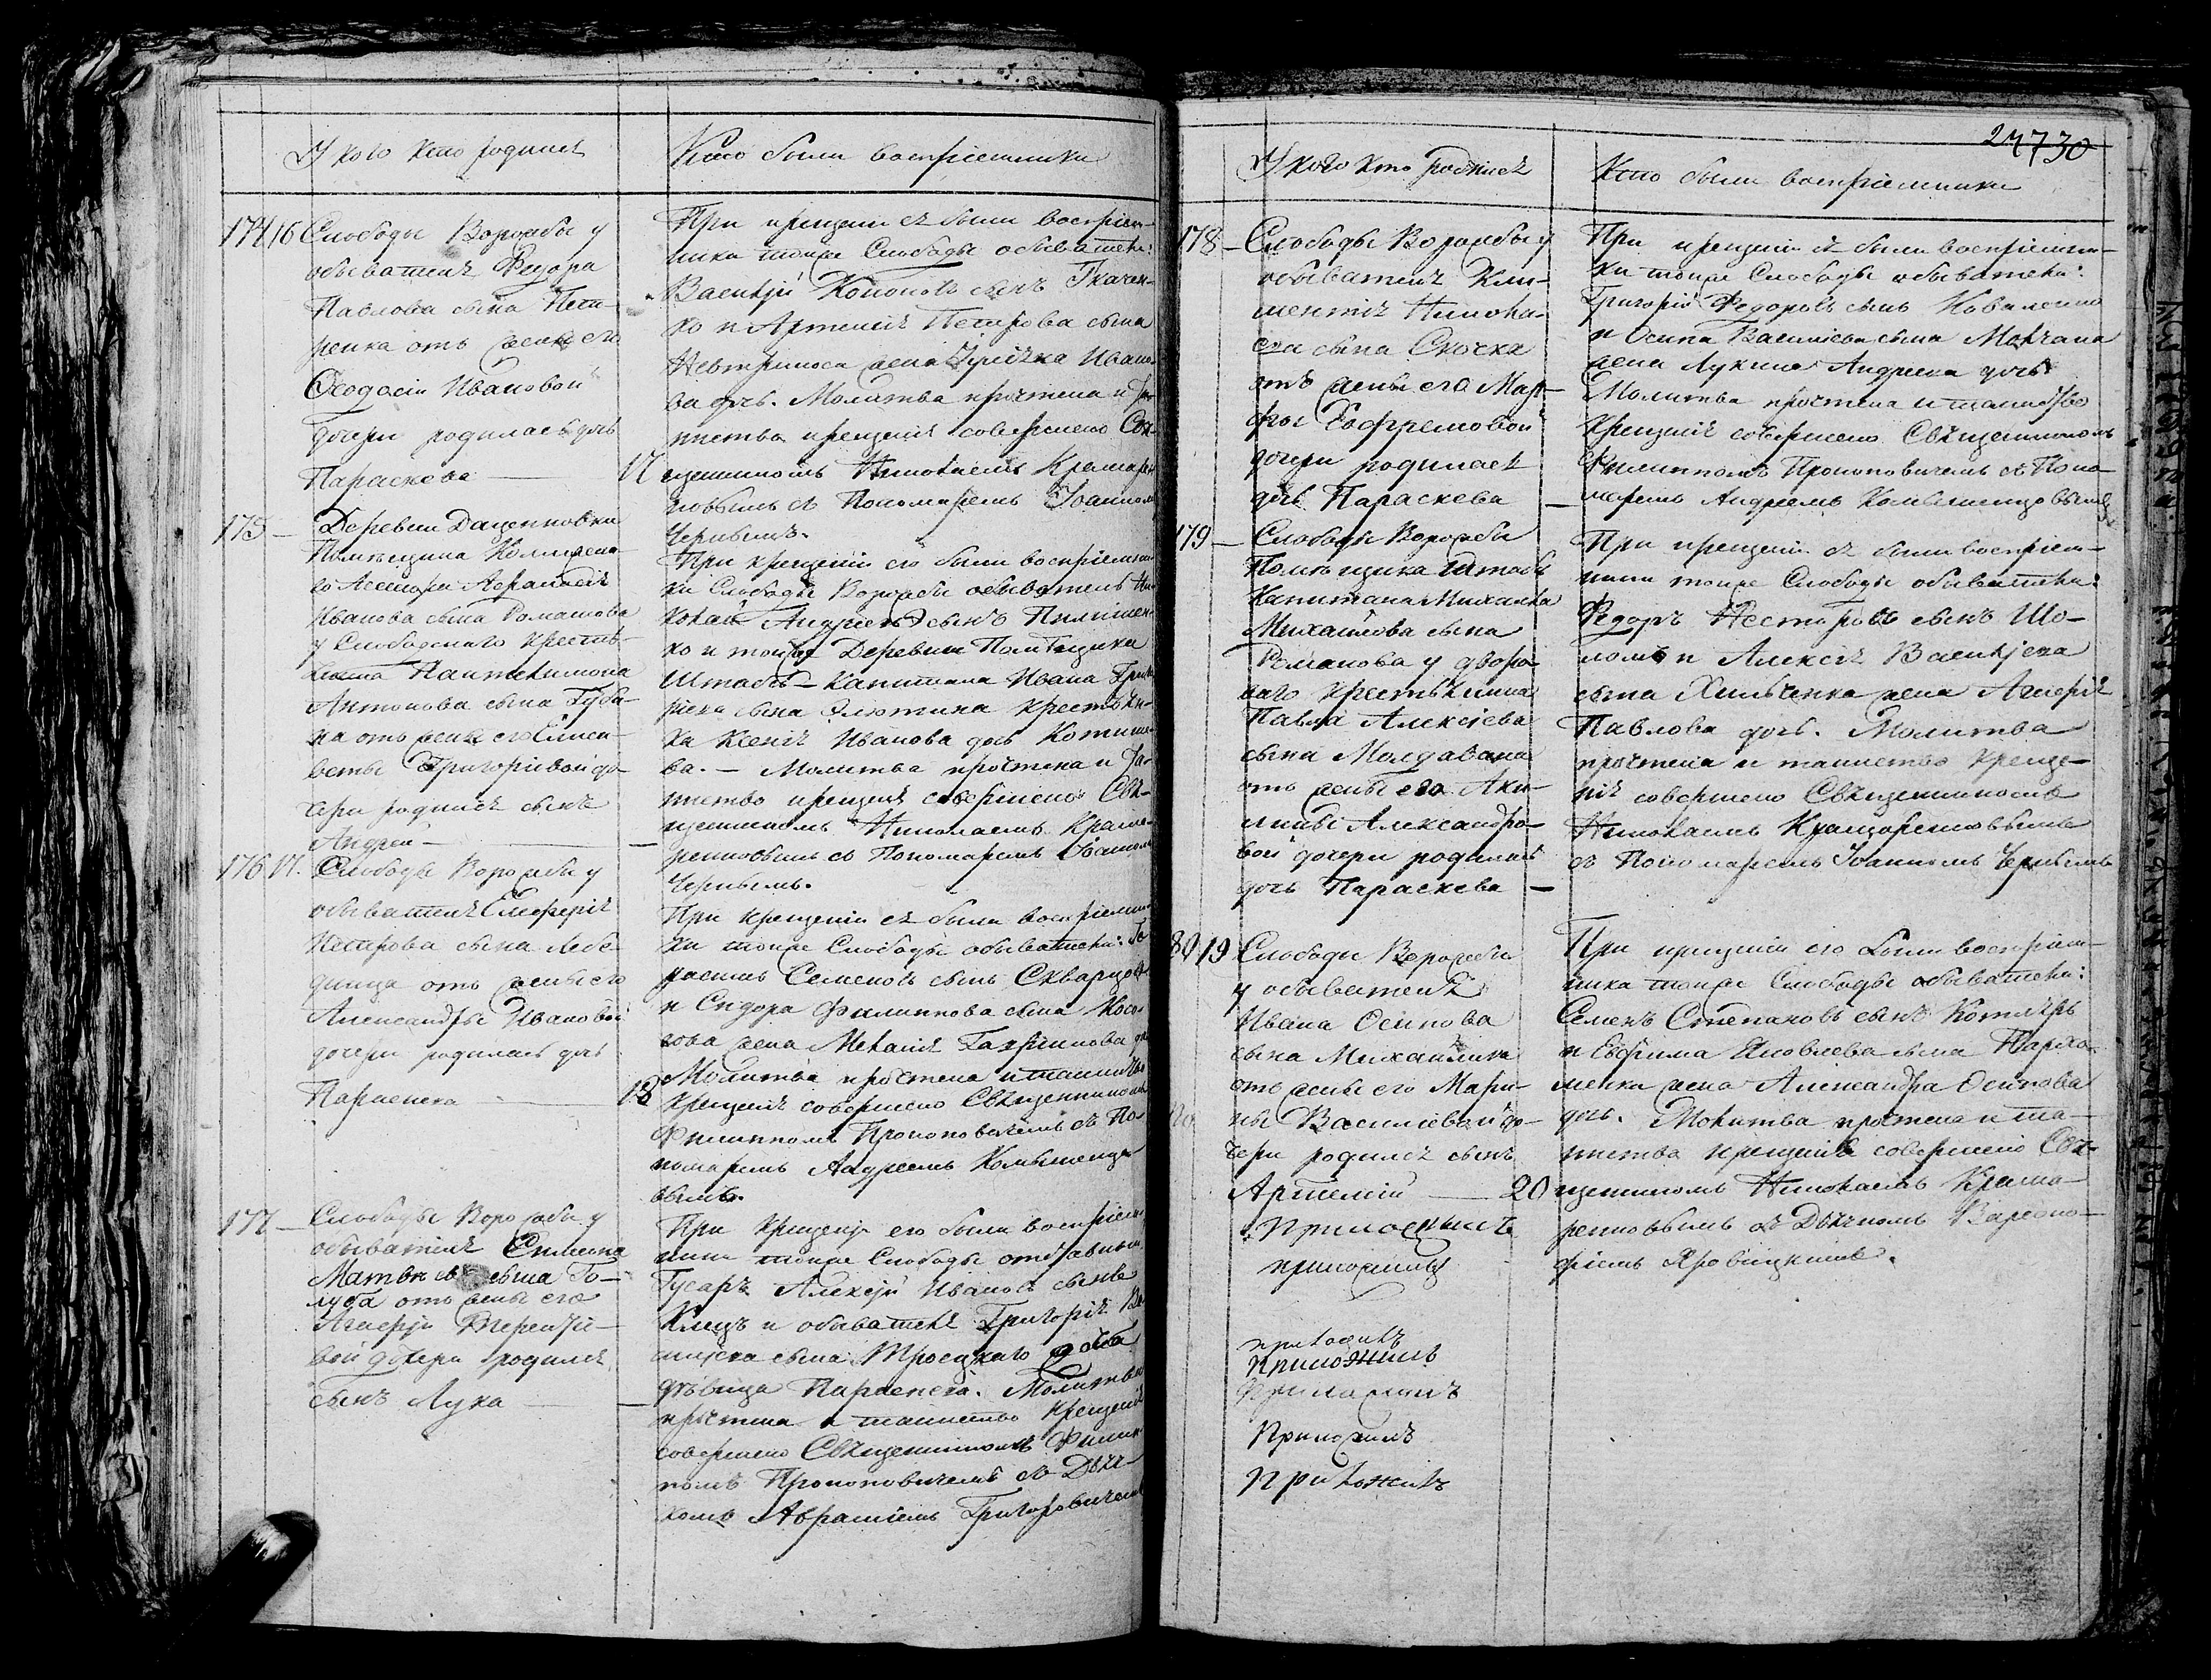 У кого кто родился
Кто были восприемники
174 16 Слободы Ворожбы у
обывателя Федора
Павлова сына Пет-
ренка отъ жены его
Феодосіи Ивановой
дочери родилась дочь
Параскева —
При крещеніи ея были воспріем-
ники тояже Слободы обыватели:
Василій Кононовъ сынъ Ткачен-
ко и Артемія Петрова сына
жена Ивано-
ва дочь. Молитва прочтена и та-
инство крещенія совершено Свя-
17 щенникомъ Николаемъ Крамарен-
ковымъ съ Пономаремъ Іоанномъ
Чернымъ.
175 — Деревни Даценковки
Помѣщика Коллежска-
го Асессора Афанасія
Иванова сына Романова
у Слободскаго крестья-
нина Пантелимона
Антонова сына Губа-
на отъ жены его Елиса-
веты Григорьевой до-
чери родился сынъ
Андрей —
При крещеніи его были воспріемни-
ки Слободы Ворожбы обыватель Ни-
колай Андреевъ сынъ Пилипен-
ко и тойже Деревни Помѣщика
Штабъ-Капитана Ивана
сына крестьян-
ка Ксенія Иванова дочь
ва. — Молитва прочтена и та-
инство крещенія совершено Свя-
щенникомъ Николаемъ Крама-
ренковымъ съ Пономаремъ Іоанномъ
Чернымъ.
176 17. Слободы Ворожбы у
обывателя Елеферія
Петрова сына Лебе-
динца отъ жены его
Александры Ивановой
дочери родилась дочь
Параскева —
При крещеніи ея были воспріемни-
ки тояже Слободы обыватели: Га-
расимъ Семеновъ сынъ Скварцовъ
и Сидора Филиппова сына Косо-
гова жена Меланія
Молитва прочтена и таинство
18 крещенія совершено Священникомъ
Филиппомъ Прокоповичемъ съ По-
номаремъ Андреемъ Комышенце-
вымъ.
177 — Слободы Ворожбы у
обывателя Симеона
Матвѣева сына Го-
луба отъ жены его
Гликеріи Терентіе-
вой дочери родился
сынъ Лука —
При крещеніи его были воспріем-
ники тояже Слободы отставной
Гусаръ Алексѣй Ивановъ сынъ
Клецъ и обывателя Григорія Ва-
силіева сына Троецкаго дочь
дѣвица Параскева. Молитва
прочтена и таинство крещенія
совершено Священникомъ Филип-
помъ Прокоповичемъ съ Дьяч-
комъ Авраміемъ Григоровичемъ
730
У кого кто родился
Кто были воспріемники
178 — Слободы Ворожбы у
обывателя Кли-
ментія Никола-
ева сына Скочка
отъ жены его Мар-
фы Ефремовой
дочери родилась
дочь Параскева —
При крещеніи ея были воспріемни-
ки тояже Слободы обыватели:
Григорій Федоровъ сынъ Коваленко
и Осипа Василіева сына Мовчана
жена Лукина Андреева дочь.
Молитва прочтена и таинство
крещенія совершено Священникомъ
Филиппомъ Прокоповичемъ съ Поно-
маремъ Андреемъ Комышенцовымъ
179 — Слободы Ворожбы
Помѣщика Штабъ
Капитана Михаила
Михайлова сына
Романова у дворо-
ваго крестьянина
Павла Алексіева
сына Молдавана
отъ жены его Аки-
лины Александро-
вой дочери родилась
дочь Параскева —
При крещеніи ея были воспріем-
ники тояже Слободы обыватели:
Федоръ Несторовъ сынъ Шо-
ломъ и Алексія Василіева
сына Хильченка жена Гликерія
Павлова дочь. Молитва
прочтена и таинство креще-
нія совершено Священникомъ
Николаемъ Крамаренковымъ
съ Пономаремъ Іоанномъ Чернымъ
180 19 Слободы Ворожбы
у обывателя
Ивана Осипова
сына Михайлика
отъ жены его Мари-
ны Василіевой до-
чери родился сынъ
Артемій —
При крещеніи его были воспріем-
ники тояже Слободы обыватели:
Семенъ Степановъ сынъ Котляръ
и Евфима Яковлева сына Пархо-
менка жена Александра Осипова
дочь. Молитва прочтена и та-
инство крещенія совершено Свя-
20 щенникомъ Николаемъ Крама-
ренковымъ съ Дьячкомъ Варфоло-
меемъ Яровицкимъ.
приложилъ
приложилъ
приложилъ
приложилъ
приложилъ
приложилъ
приложилъ